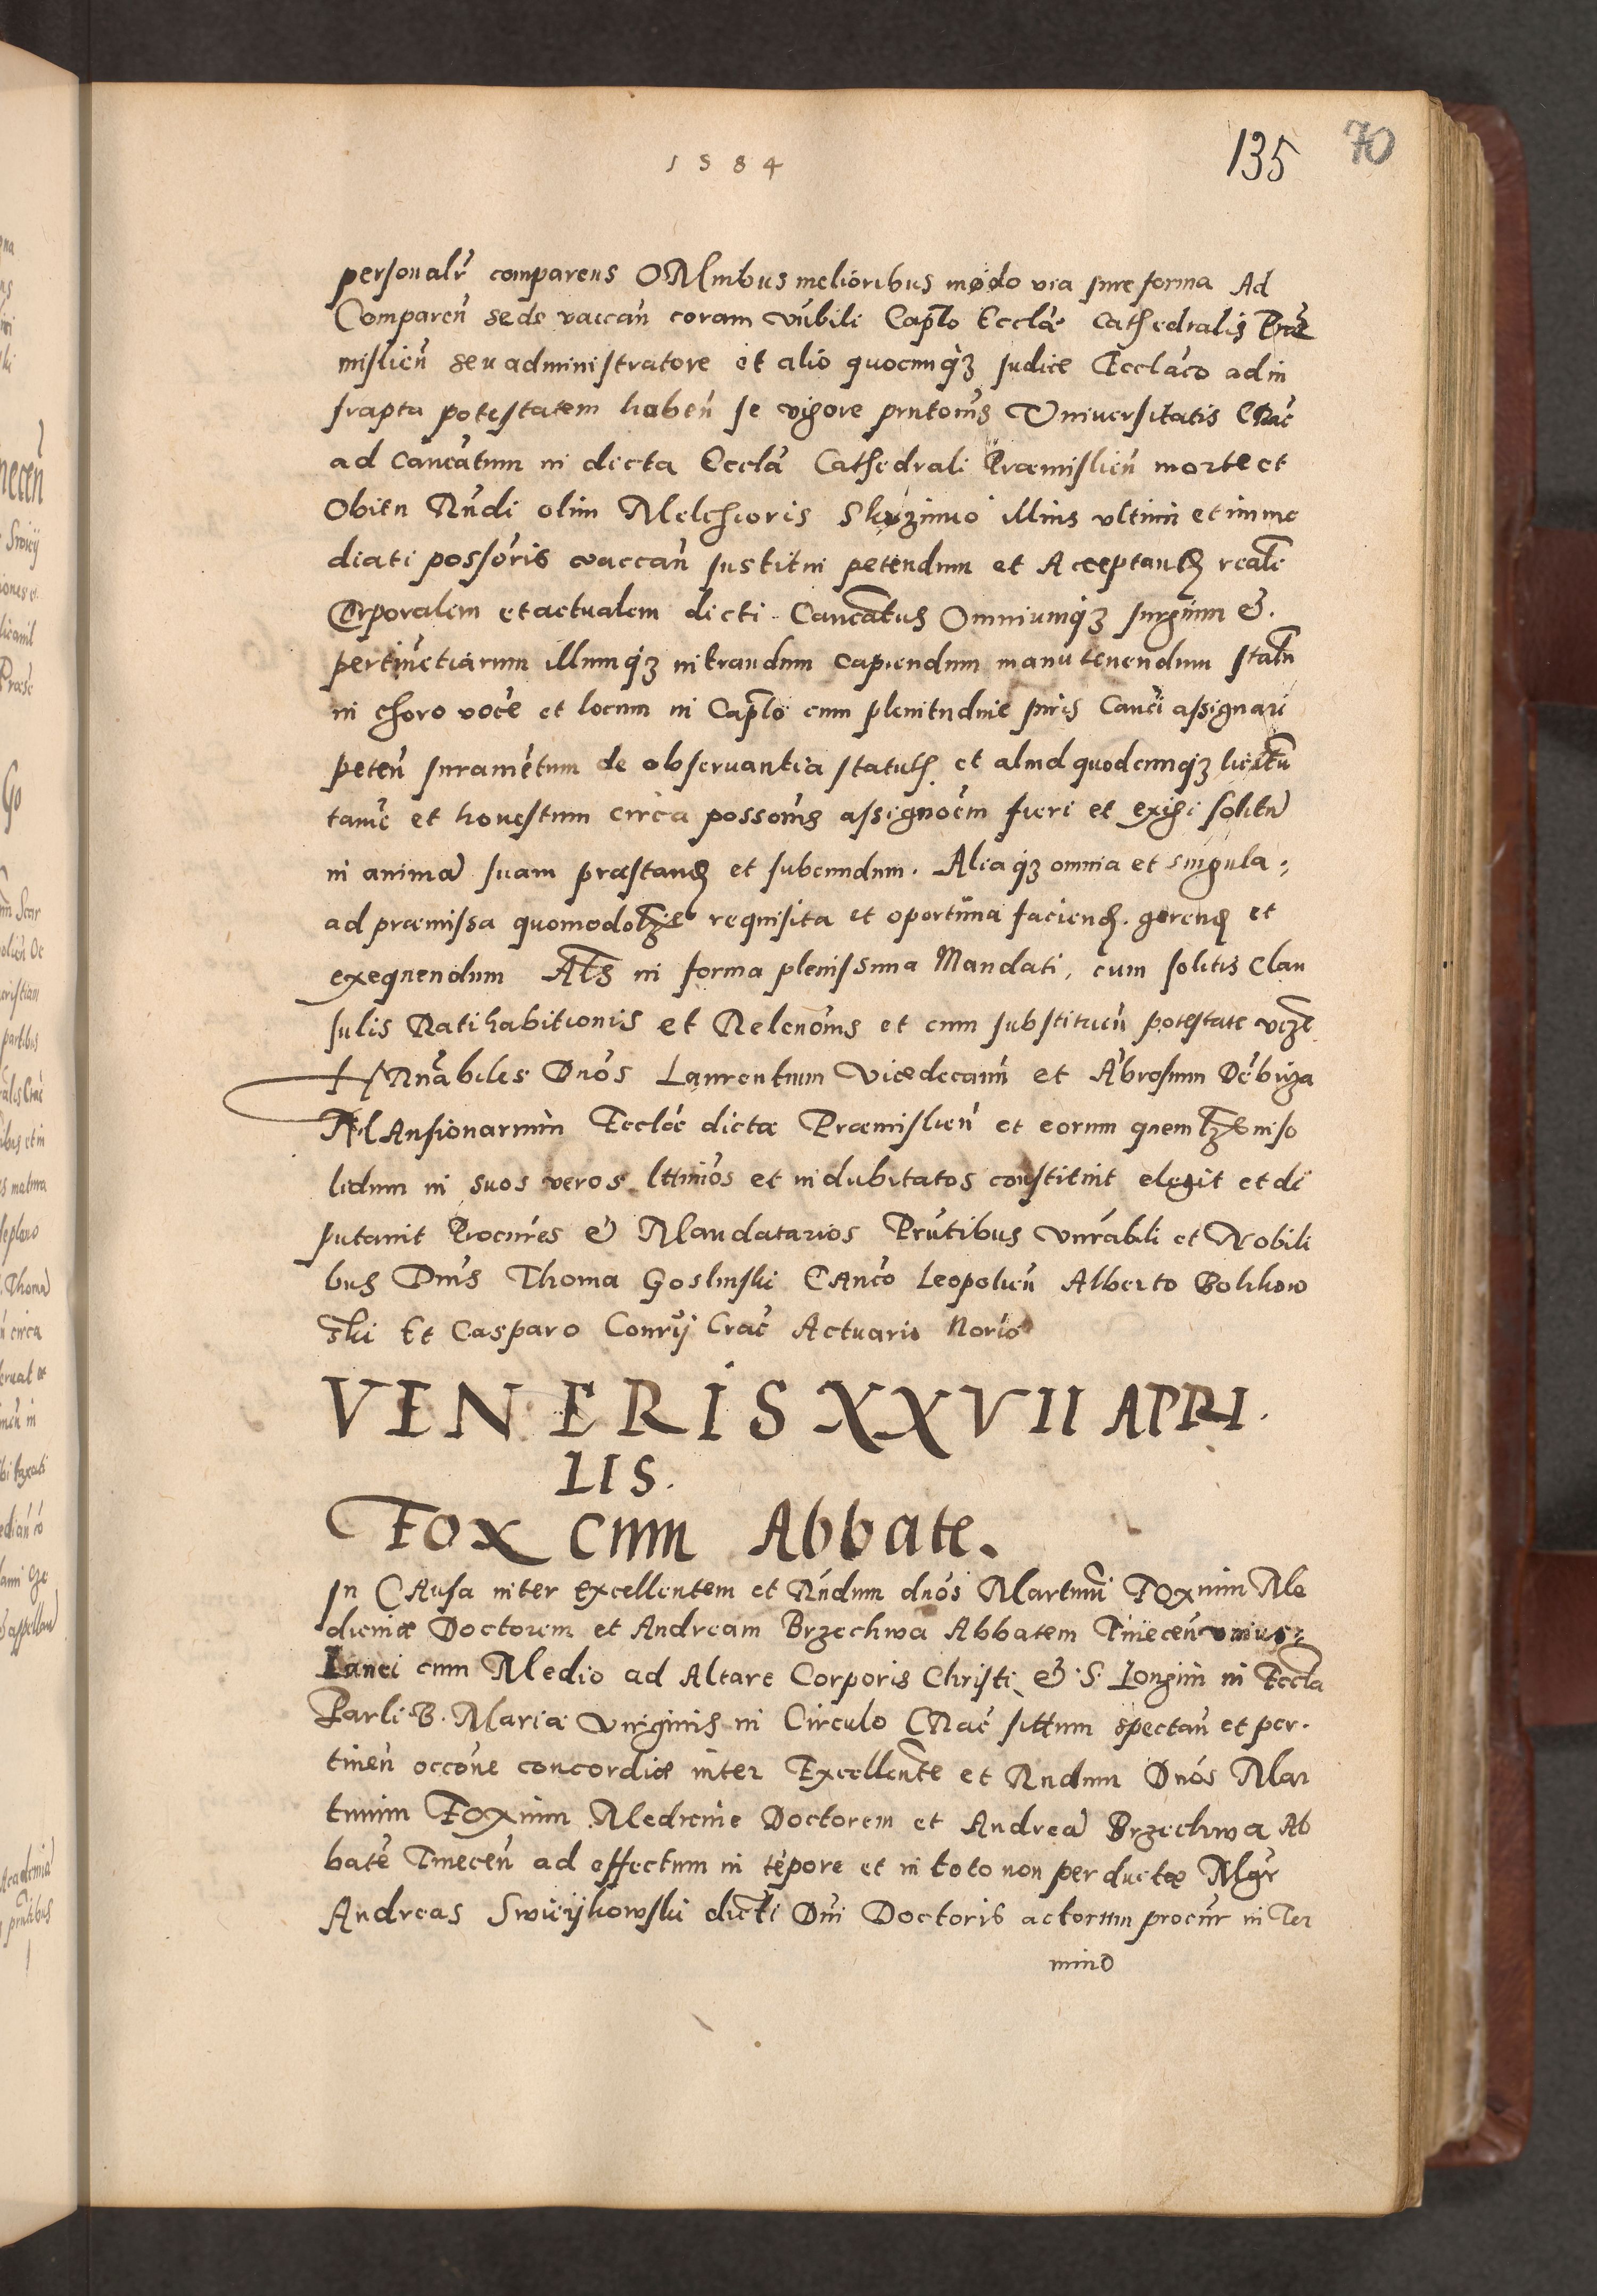 1584
135 70
personalr̃ comparens OMnibus melioribus modo via jure forma Ad
Comparen̄ sede vaccan̄ coram vn̄bili Cap̄lo Eccl̄æ Cathedralis Præ
mislien̄ seu administratore et alio quocunq̢ judice Eccl̄aco ad in
frapta potestatem haben̄ se vigore pn̄tonis Vniversitatis CRac̄
ad Can̄catum in dicta Eccl̄a Cathedrali Præmislien̄ morte et
Obitu Rn̄di olim Melchioris illius vltimi et imme
diati poss̄oris vaccan̄ Institui petendum et Acceptand̄ realē
Corporalem et actualem dicti Canc̄atus Omniumq̢ jurgium &.
pertinētiarum illumq̢ intrandum capiendum manutenendum stal̄u
in choro vocē et locum in Cap̄lo cum plenitudine juris Can̄ci assignari
peten̄ juramētum de observantia statut̄ et aliud quodcunq̢ licitū
tamē et honestum circa poss̄onis assign̄oem fieri et exigi solitū
in animā suam præstand̄ et subeundum. Aliaq̢ omnia et singula
ad præmissa quomodolꝫ requisita et oportuna faciend̄. gerend̄ et
exequendum Al̄s in forma plenissima Mandati, cum solitis Clau
sulis Ratihabitionis et Relen̄onis et cum substituen̄ potestate vizꝫ
Hnrābiles Dn̄os Laurentium Vicedecanū et Ābrosium Dēbinza
MAnsionarium Eccl̄æ dictæ Præmislien̄ et eorum quemlꝫ in so
lidum in suos veros lttimos et indubitatos constituit elegit et de
putavit Procur̄es & Mandatarios Prn̄tibus Vnrābili et Nobili
bus Dn̄is Thoma Goslinski CAnc̄o Leopolien̄ Alberto Bolikow
ski Et Casparo Conrij Crac̄ Actuario Norio
VENERIS XXVII APRI.
LIS.
FOX Cum Abbate.
In CAusa inter Excellentem et Rn̄dum dn̄os Martinū FOxium Me
dicinæ Doctorem et Andream Brzechwa Abbatem Tinecen̄ vnius
Lanei cum Medio ad Altare Corporis Christi & S. Longini in Eccl̄a
Parli B. Mariæ Virginis in Circulo CRac̄ sittum spectan̄ et per.
tinen̄ occ̄one concordiæ inter Excellentē et Rndum Dn̄os Mar
tinum FOxium Medicine Doctorem et Andreā Brzechwa Ab
batē Tinecen̄ ad effectum in tēpore et in toto non perductæ Mgr̄
Andreas Swieijkowski dicti Dn̄i Doctoris actorum procur̄ in Ter
mino